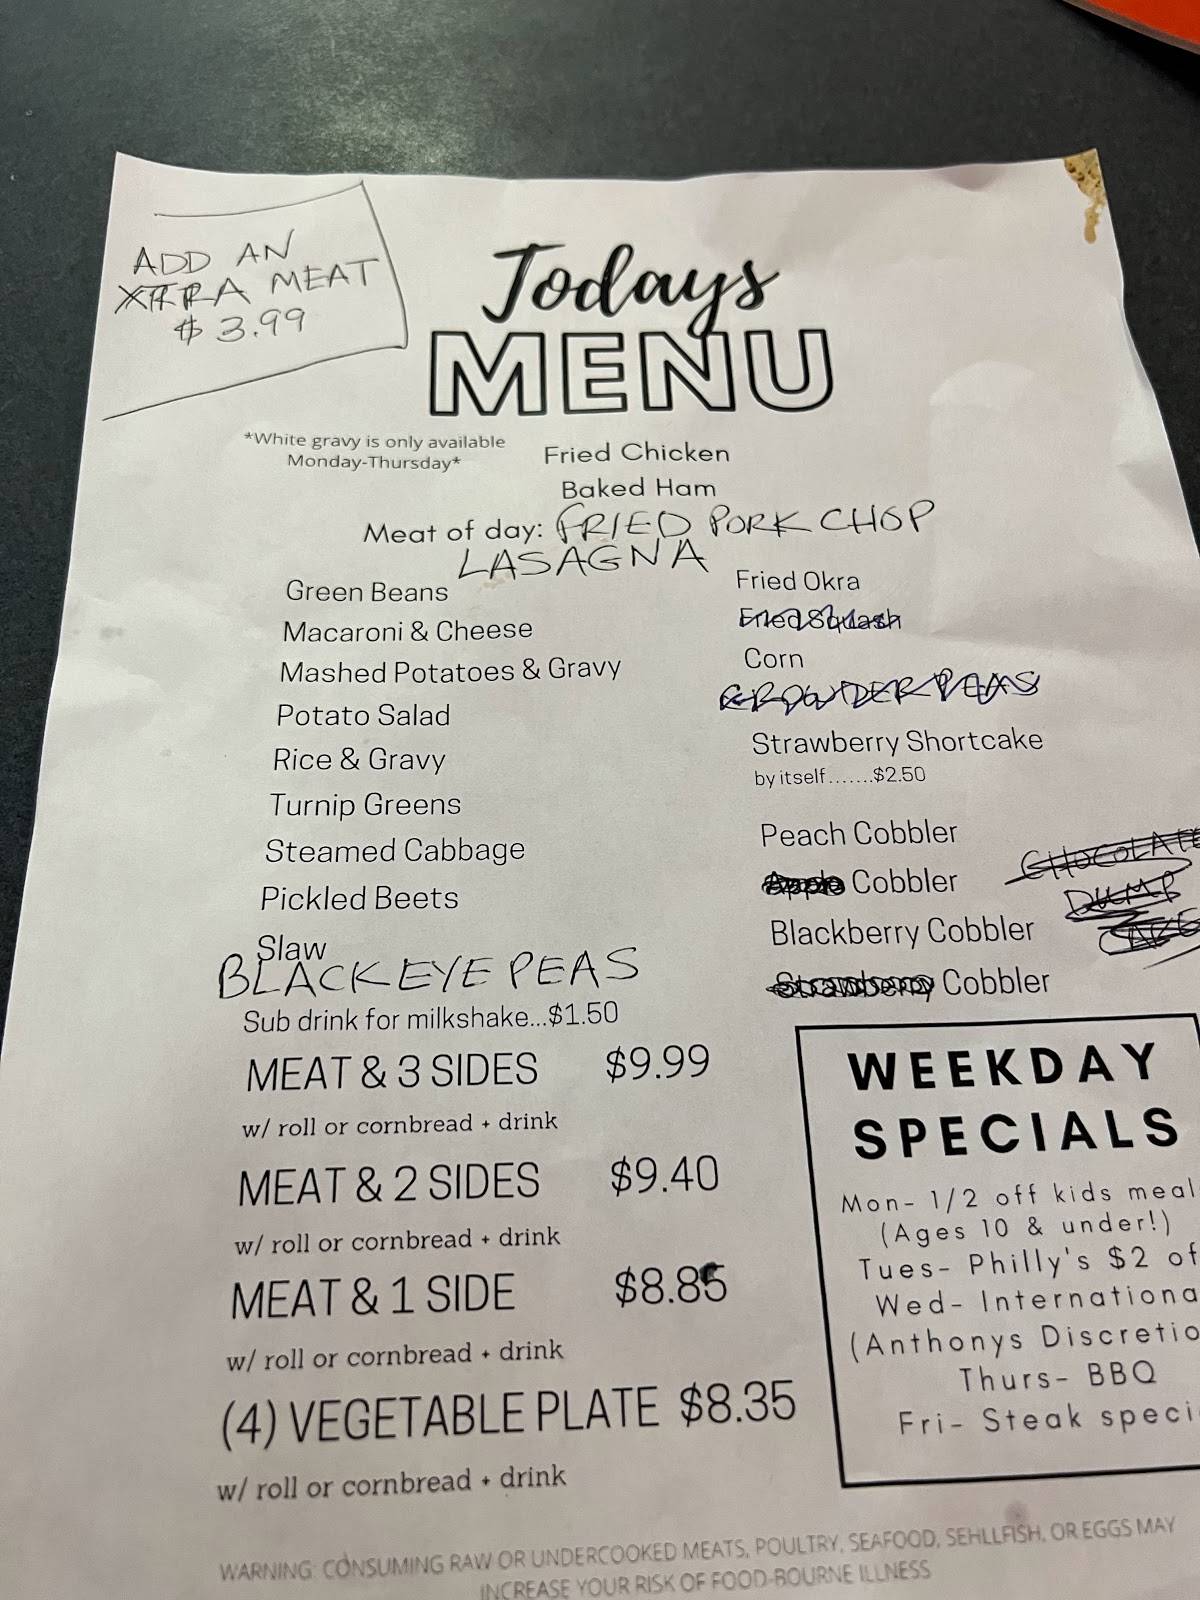 ADD AN
XTRA MEAT
$ 3.99
Todays
MENU
*White gravy is only available
Monday-Thursday*
Fried Chicken
Baked Ham
Meat of day: FRIED PORK CHOP
LASAGNA
Green Beans
Macaroni & Cheese
Mashed Potatoes & Gravy
Potato Salad
Rice & Gravy
Turnip Greens
Steamed Cabbage
Pickled Beets
Slaw
BLACKEYE PEAS
Fried Okra
Fried Squash
Corn
CROWDER PEAS
Strawberry Shortcake
by itself.......$2.50
Peach Cobbler
Apple Cobbler
Blackberry Cobbler
Strawberry Cobbler
CHOCOLATE
DUMP
CAKE
Sub drink for milkshake...$1.50
MEAT & 3 SIDES $9.99
w/ roll or cornbread + drink
MEAT & 2 SIDES $9.40
w/ roll or cornbread + drink
MEAT & 1 SIDE $8.85
w/ roll or cornbread + drink
(4) VEGETABLE PLATE $8.35
w/ roll or cornbread + drink
WEEKDAY
SPECIALS
Mon- 1/2 off kids meal
(Ages 10 & under!)
Tues- Philly's $2 of
Wed- Internationa
(Anthonys Discretio
Thurs- BBQ
Fri- Steak speci
WARNING: CONSUMING RAW OR UNDERCOOKED MEATS, POULTRY, SEAFOOD, SEHLLFISH, OR EGGS MAY
INCREASE YOUR RISK OF FOOD-BOURNE ILLNESS